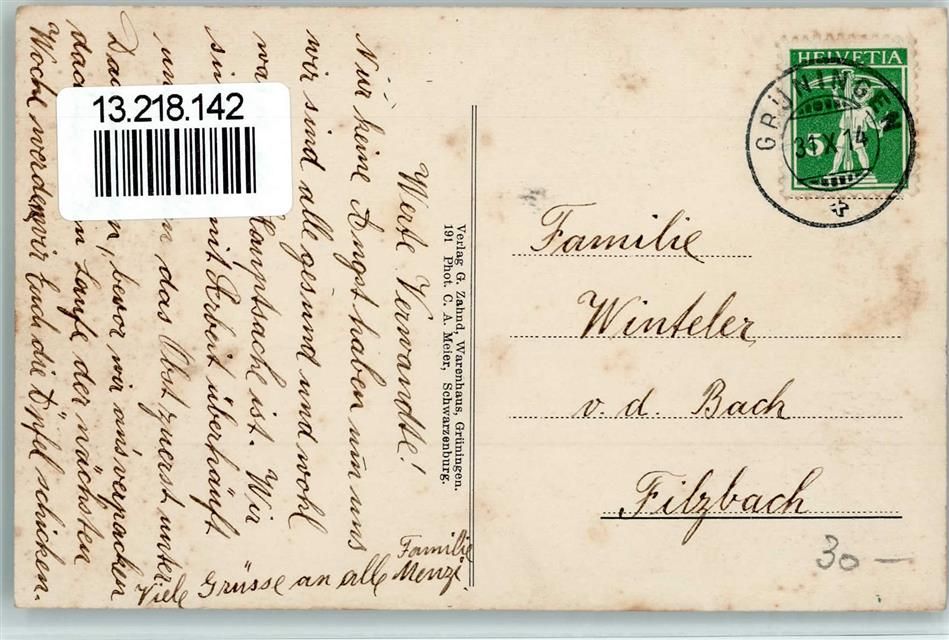 13.218.142
Werte Verwandte!
Nur keine Angst haben um uns
wir sind alle gesund und wohl
was Hauptsache ist. Wir
sind mit Arbeit überhäuft
und das Obst zuerst unter
Dach, bevor wir ans verpacken
doch im Laufe der nächsten
Woche werden wir Euch die Äpfel schicken.
Viele Grüsse an alle Familie
Menzi.
Verlag G. Zahnd, Warenhaus, Grüningen.
191 Phot. C. A. Meier, Schwarzenburg.
HELVETIA
5
GRÜNINGEN
31 X 14
Familie
Winteler
v. d. Bach
Filzbach
30 —